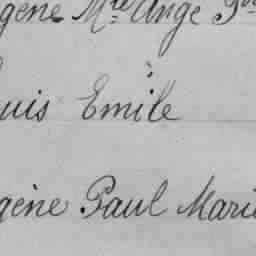 gène Mie Ange
uis Emile
gène Paul Marie